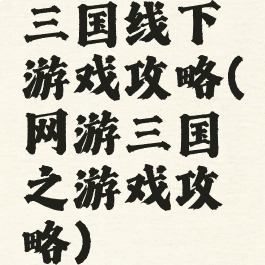 三国线下
游戏攻略(
网游三国
之游戏攻
略)